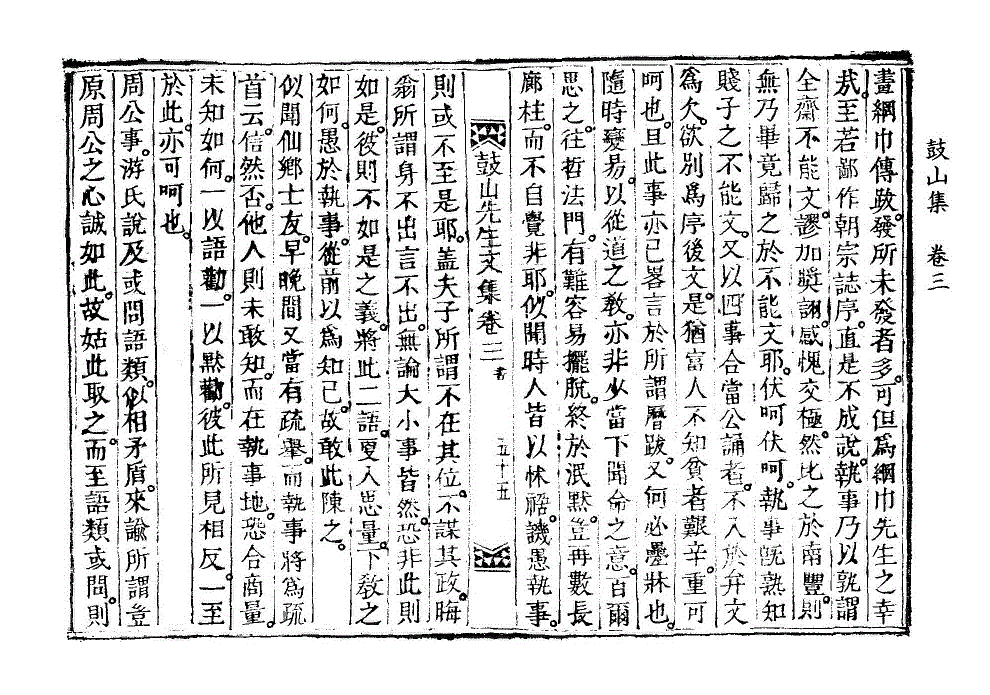 鼓山集 卷三
畫網巾傳跋。發所未發者多。可但爲網巾先生之幸
哉。至若鄙作朝宗誌序。直是不成說。執事乃以孰謂
全齋不能文。謬加奬詡。感愧交極。然比之於南豐。則
無乃畢竟歸之於不能文耶。伏呵伏呵。執事旣熟知
賤子之不能文。又以四事合當公誦者。不入於弁文
爲欠。欲別爲序後文。是猶富人不知貧者艱辛。重可
呵也。且此事亦已畧言於所謂曆跋。又何必疊牀也。
隨時變易。以從道之敎。亦非少當下聞命之意。百爾
思之。往哲法門。有難容易擺脫。終於泯默。豈再數長
廊柱。而不自覺非耶。似聞時人皆以怵禍譏愚。執事。
鼓山先生文集卷三 書 五十五
則或不至是耶。盖夫子所謂不在其位。不謀其政。晦
翁所謂身不出言不出。無論大小事皆然。恐非此則
如是。彼則不如是之義。將此二語。更入思量。下敎之
如何。愚於執事。從前以爲知己。故敢此陳之。
似聞仙鄕士友。早晩間又當有疏擧。而執事將爲疏
首云。信然否。他人則未敢知。而在執事地。恐合商量。
未知如何。一以語勸。一以默勸。彼此所見相反。一至
於此。亦可呵也。
周公事。游氏說及或問語類。似相矛盾。來諭所謂豈
原周公之心誠如此。故姑此取之。而至語類或問。則